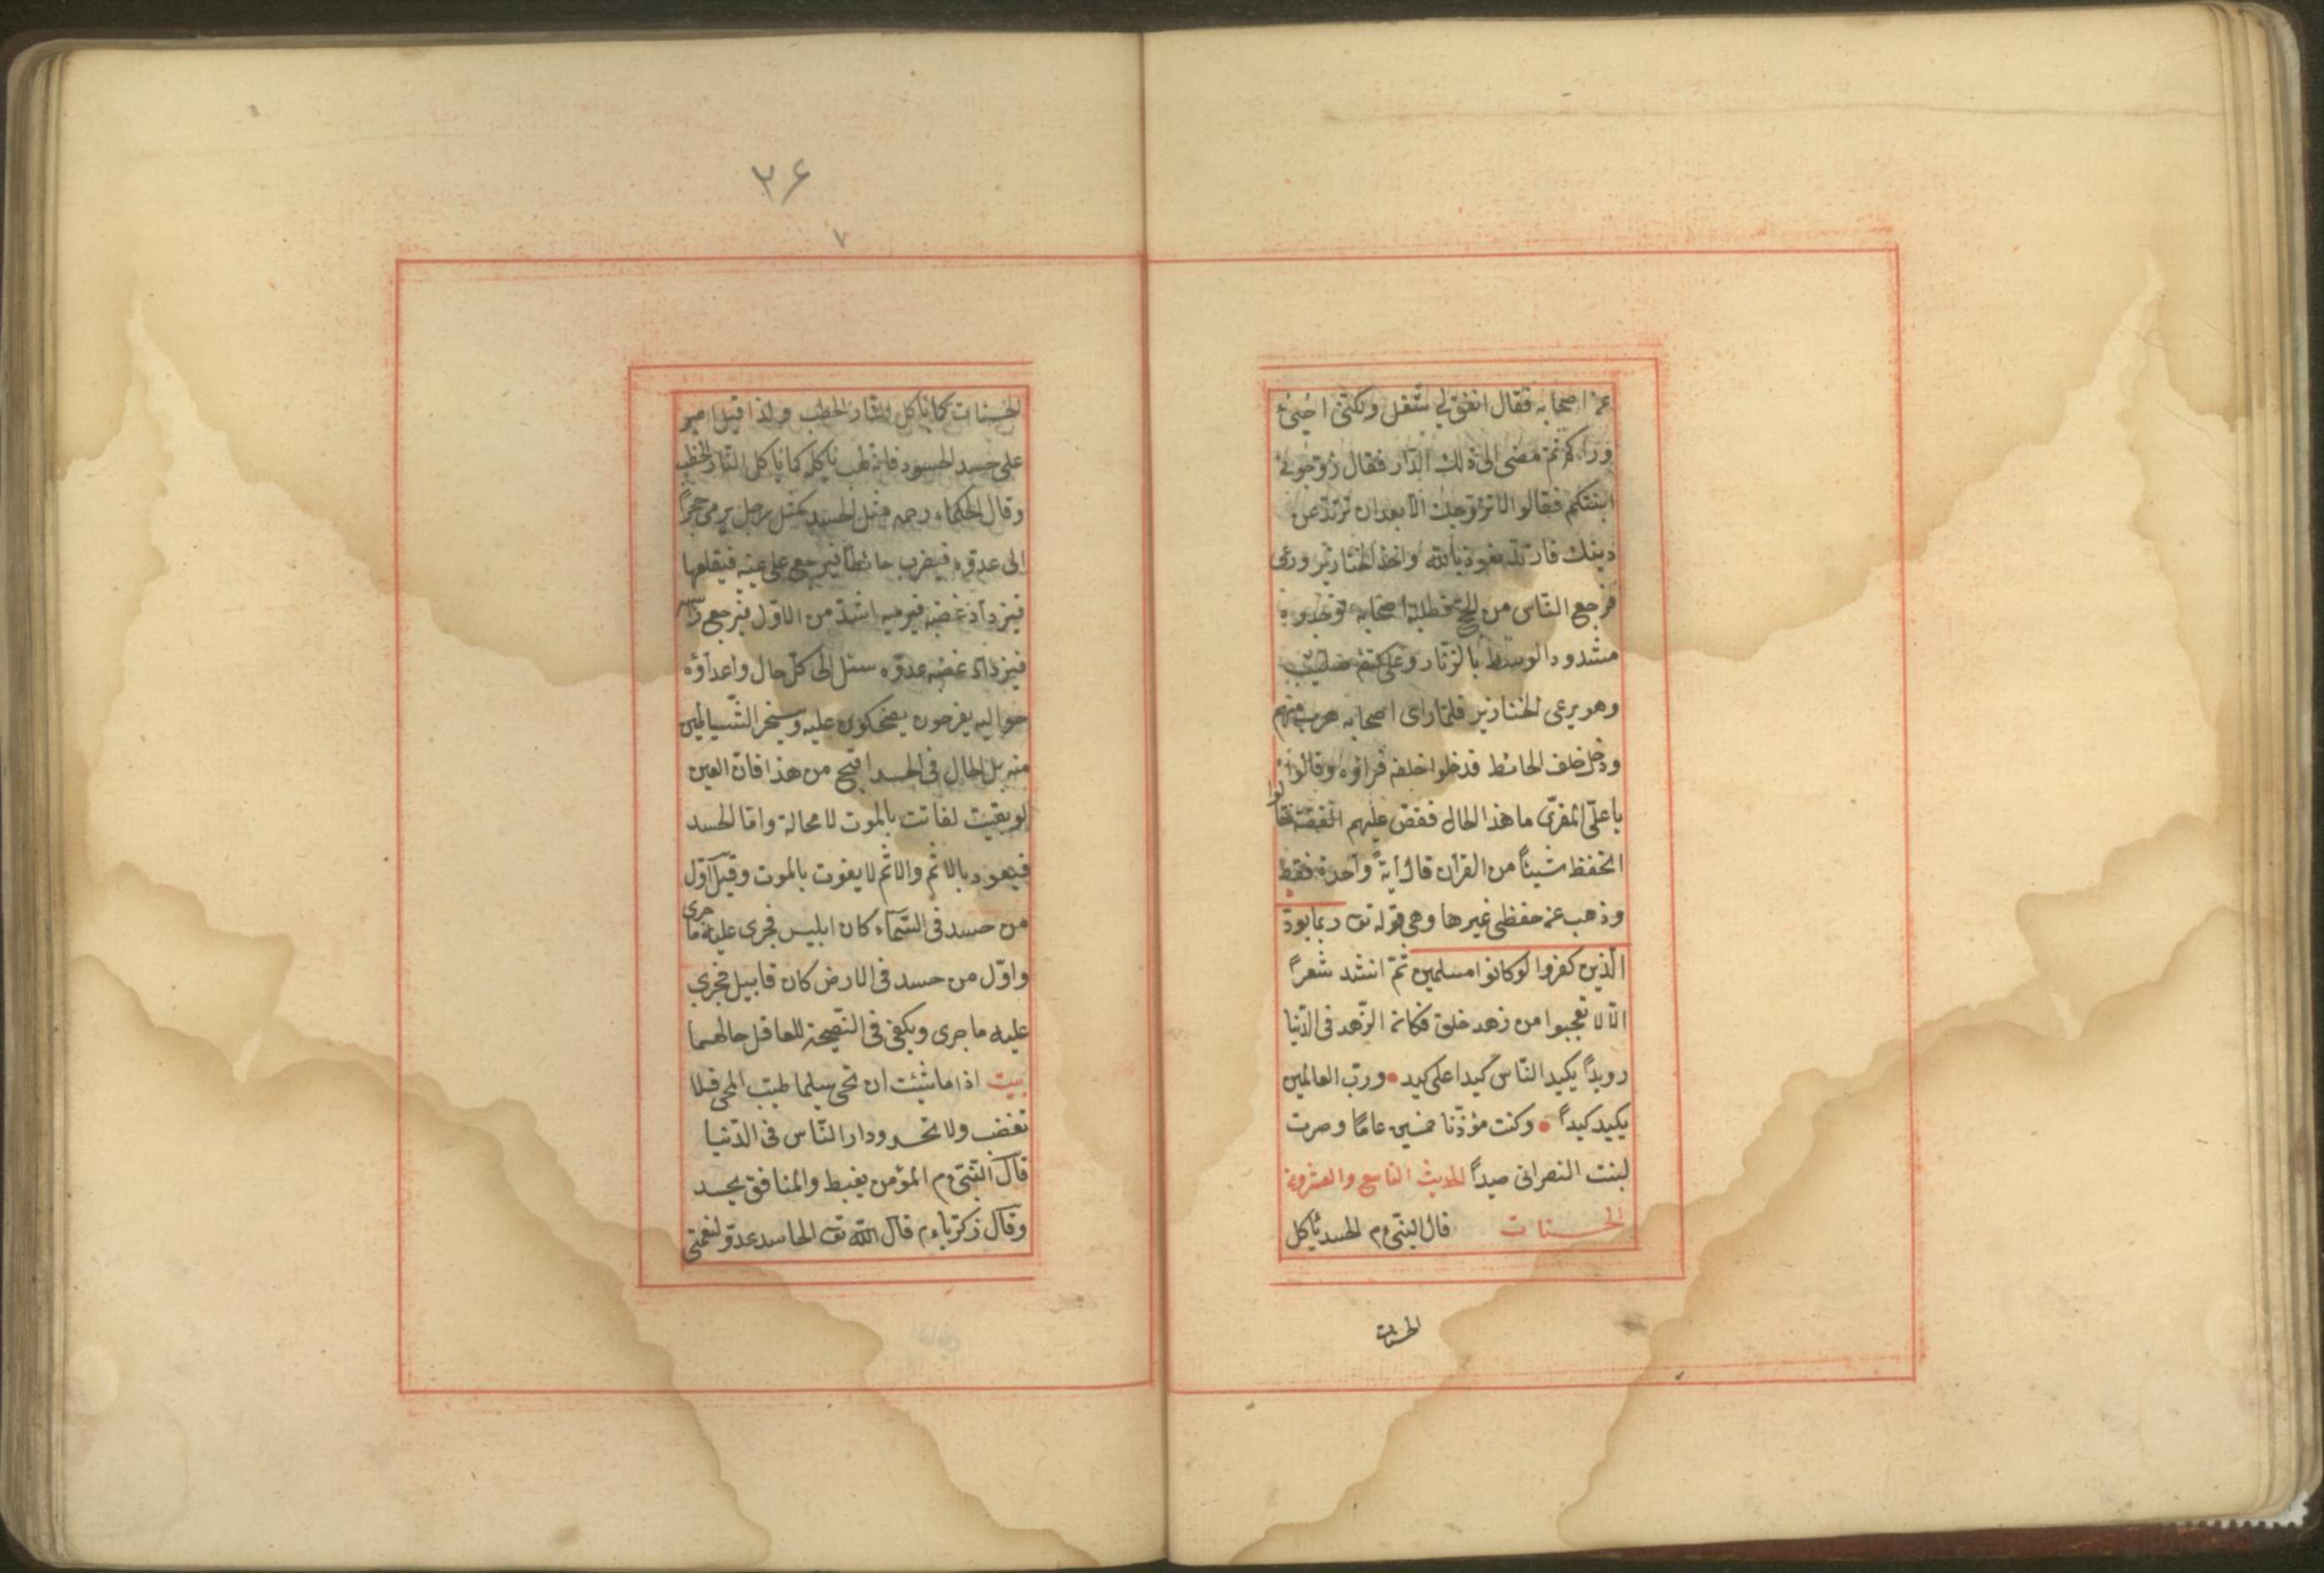 عن اصحابه فقال اتفق لي شغل ولكنّى اجيئ
وراكم ثمّ مضى الى ذلك الدّار فقال زوّجونى
ابنتكم فقالوا لا نزوّجك الّا بعد ان ترتدّ عن
دينك فارتدّ نعوذ بالله واخذ الخنازير ورعى
فرجع النّاس من الحجّ فطلبه اصحابه فوجدوه
مشدود الوسط بالزّنّار وعلى كتفه صليب
وهو يرعى الخنازير فلمّا راى اصحابه هرب منهم
ودخل خلف الحائط فدخلوا خلفه فراؤه وقالوا
يا علىّ المقرّى ما هذا الحال فقصّ عليهم القصّة فقالوا
اتحفظ شيئاً من القرآن قال آيةً واحدة فقط
وذهب عن حفظى غيرها وهى قوله تعـ ربما يودّ
الّذين كفروا لو كانوا مسلمين ثمّ انشد شعراً
الّا لا تعجبوا من زهد خلق فكانه الزّهد فى الدّنيا
رويداً يكيد النّاس كيدا على كيد • وربّ العالمين
يكيد كيداً • وكنت مؤذّنا خمسين عامًا وصرت
لبنت النصرانى صيداً الحديث التاسع والعشرون
الحسنات قال النبىّ عم الحسد يأكل
الحسنات
٢۶
٧
الحسنات كما تأكل النّار الحطب ولذا قيل اصبر
على حسد الحسود فانه يأكله كما تأكل النّار الحطب
وقال الحكماء رحمه مثل الحسد كمثل رجل يرمى حجراً
الى عدوّه فيضرب حائطا فيرجع على عينه فيقلعها
فيزداد غضبه فيرميه اشدّ من الاوّل فيرجع
فيزداد غضبه عدوّه الى كلّ حال واعداؤه
حواليه يفرحون يضحكون عليه وسخر الشّياطين
منه بل الحال فى الحسد اقبح من هذا فان العين
لو بقيت لفاتت بالموت لا محالة وامّا الحسد
فيعود بالاثم والاثم لا يفوت بالموت وقيل اوّل
من حسد فى السّمآء كان ابليس فجرى عليه ما جرى
واوّل من حسد فى الارض كان قابيل فجرى
عليه ما جرى ويكفى فى النّصيحة للعاقل حالهما
بيت اذا ما شئت ان تحى سليما طيب المحى فلا
تغضب ولا تحسد ودار النّاس فى الدّنيا
قال النّبىّ عم المؤمن يغبط والمنافق يحسد
وقال زكريّا عم قال الله تعـ الحاسد عدوّ لنعمتى